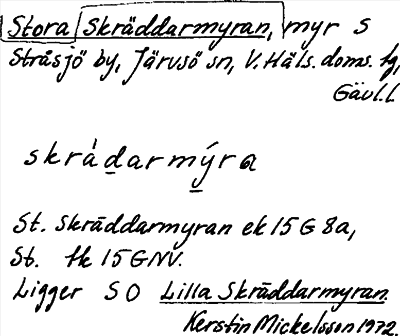 Stora Skräddarmyran, myr S
Stråsjö by, Järvsö sn, V. Häls. doms. tg,
Gävl. L
skrȧ́darmýra
St. Skräddarmyran ek 15 G 8a,
St. tk 15 G NV.
Ligger S O Lilla Skräddarmyran.
Kerstin Mickelsson 1972.